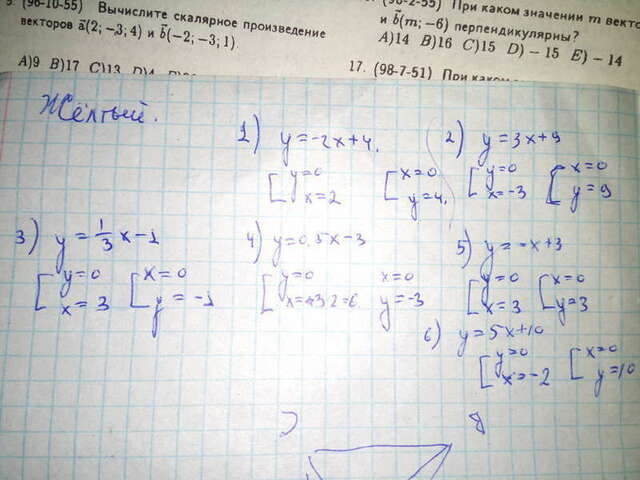 9. (96-10-55) Вычислите скалярное произведение
векторов a̅(2; -3; 4) и b̅(-2; -3; 1)
A)9 B)17 C)13
(96-2-55) При каком значении m
и b̅(m; -6) перпендикулярны?
A)14 B)16 C)15 D) - 15 E) - 14
17. (98-7-51) При
Жёлтый.
1) y=-2x+4.
y=0
x=2
x=0
y=4.
2) y=3x+9
y=0
x=-3
x=0
y=9
3) y=1/3x-1
y=0
x=3
x=0
y=-1
4) y=0,5x-3
y=0
x=+3·2=6
x=0
y=-3
5) y=-x+3
y=0
x=3
x=0
y=3
6) y=5x+10
y=0
x=-2
x=0
y=10
C